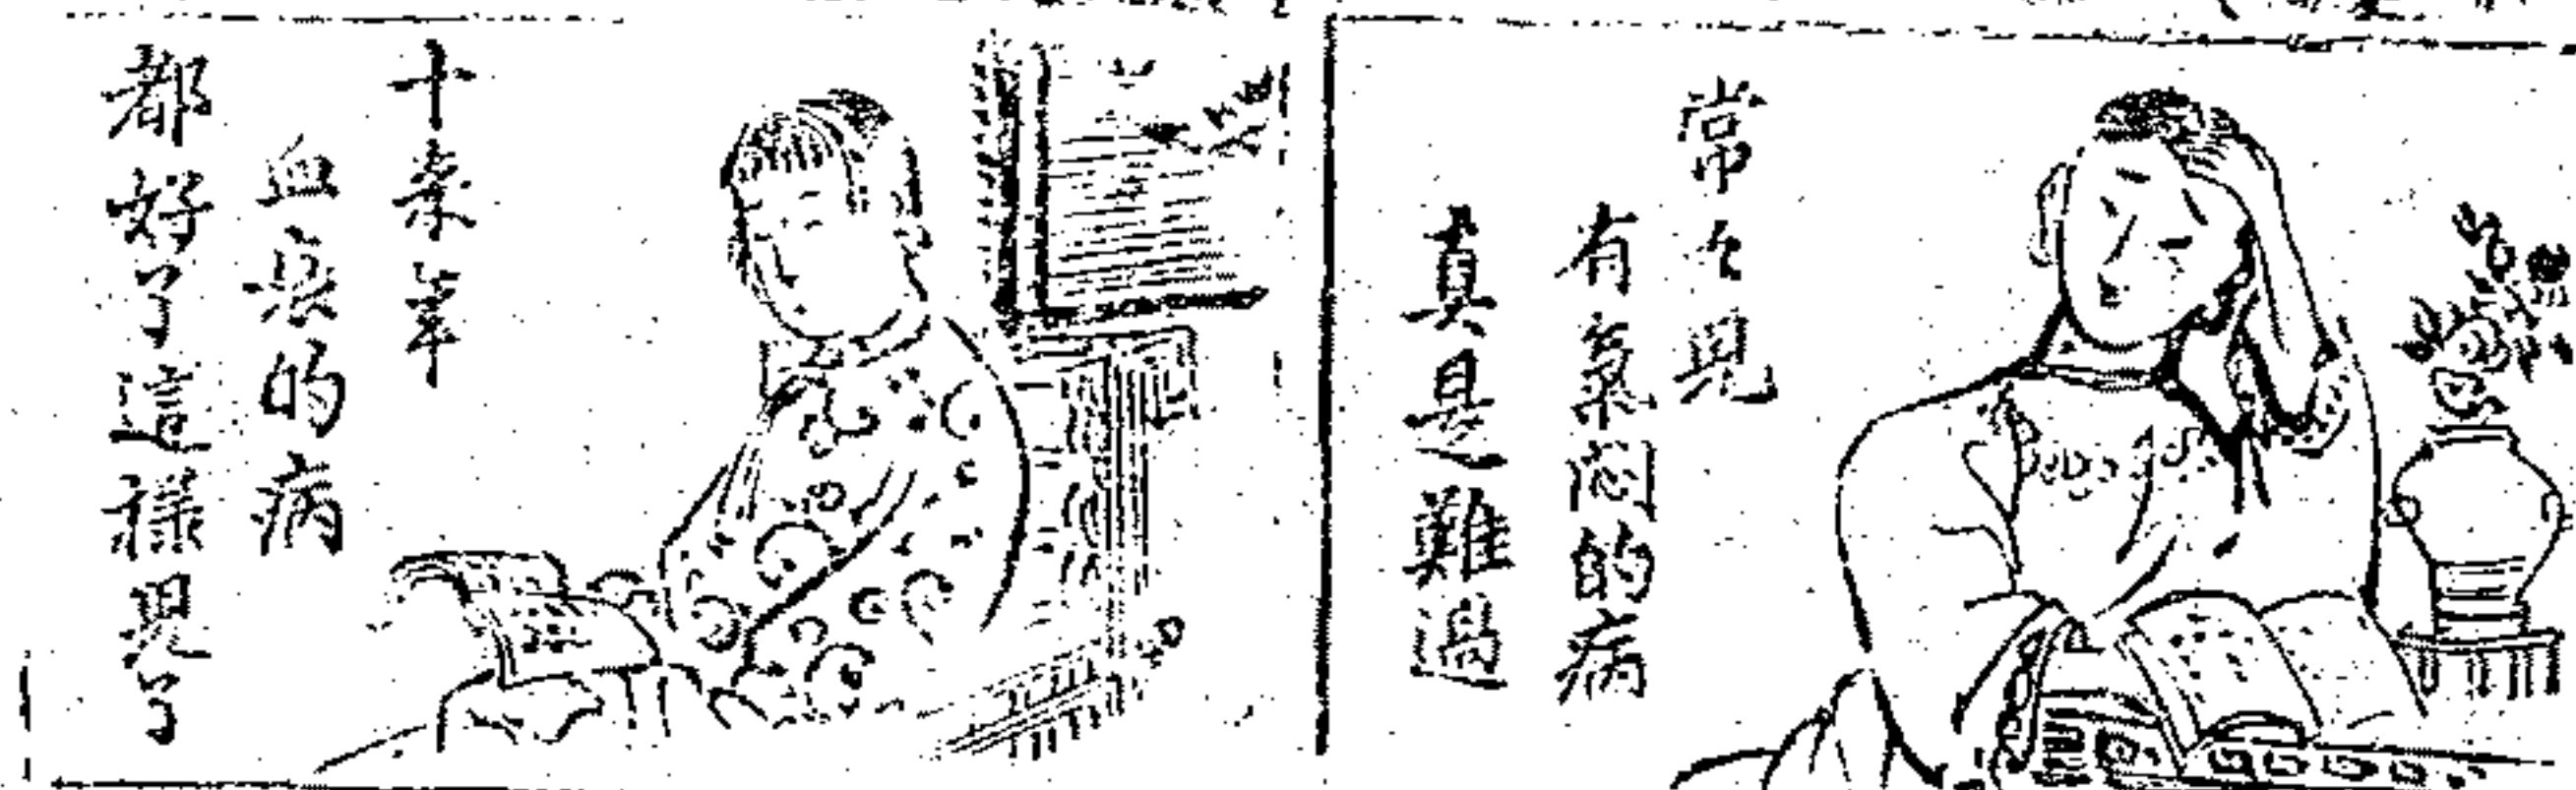 常々見
有氣悶的病
真是難過
十來年
血衰的病
都好了這樣現了